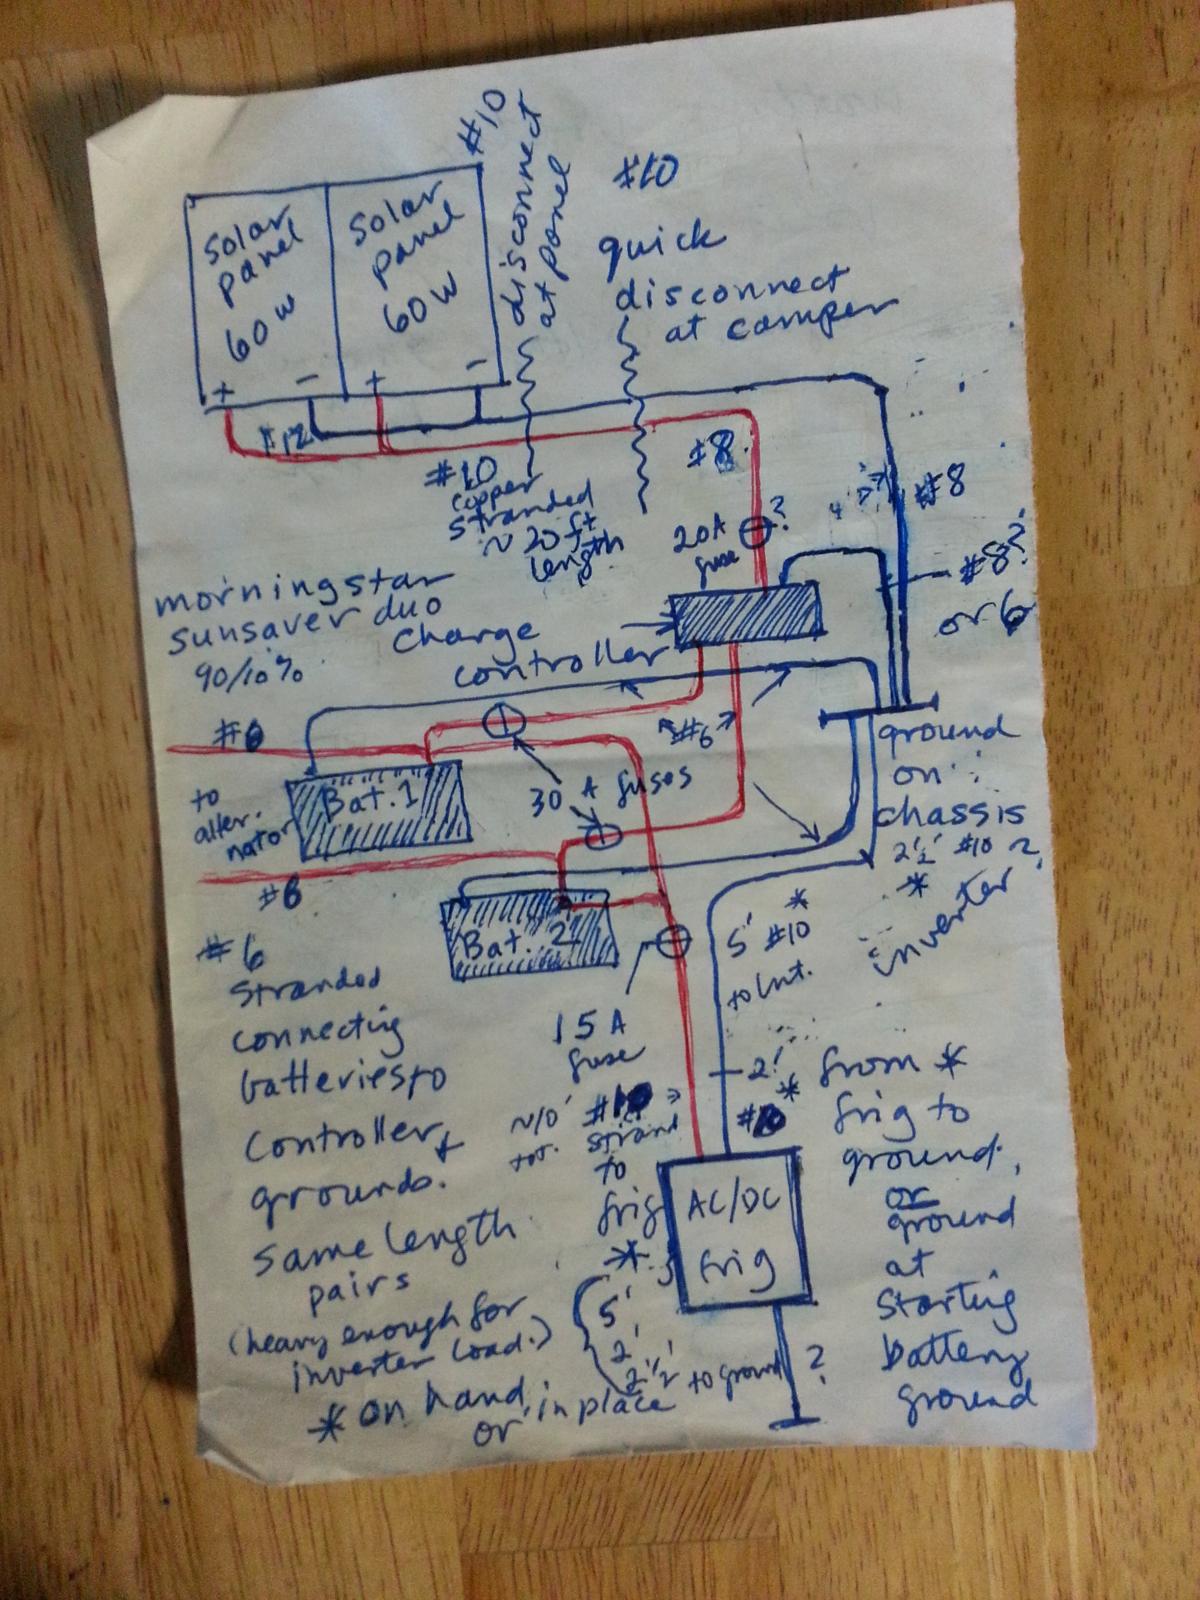 #10
disconnect
at panel
#10
quick
disconnect
at camper
Solar
panel
60 W
+
-
Solar
panel
60 W
+
-
#12
#10
copper
stranded
~ 20 ft
length
#8
20A
fuse
?
#8
#8?
or 6
morningstar
sunsaver duo
90/10%
charge
controller
#6
to
alter.
nator
Bat. 1
#6
30 A fuses
ground
on
chassis
2½' #10 ?
*
inverter
#6
Bat. 2
5' #10 *
to int.
15 A
fuse
#6
stranded
connecting
batteries to
controller +
grounds.
same length
pairs
(heavy enough for
inverter load.)
* on hand,
or in place
~10'
tot.
#10
strand
to
frig
*
5'
2'
2½' to ground
2'
*
#10
AC/DC
frig
?
from *
frig to
ground,
or
ground
at
starting
battery
ground